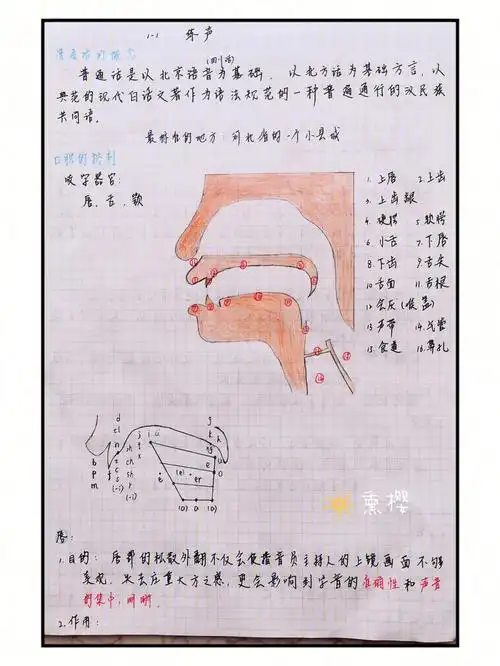 1-1 练声
普通话的概念
(四川话)
普通话是以北京语音为基础，以北方话为基础方言，以
典范的现代白话文著作为语法规范的一种普遍通行的汉民族
共同语。
最标准的地方：河北省的一个小县城
口腔的控制
咬字器官：
唇、舌、颚
1. 上唇 2. 上齿
3. 上齿龈
4. 硬腭 5. 软腭
6. 小舌 7. 下唇
8. 下齿 9. 舌尖
10 舌面 11. 舌根
12 会厌(喉盖)
13 声带 14. 气管
15. 食道 16. 鼻孔
熏樱
唇：
1. 目的：唇部的松散外翻不仅会使播音员主持人的上镜画面不够
美观，失去庄重大方之感，更会影响到字音的准确性和声音
的集中，明晰。
2. 作用：